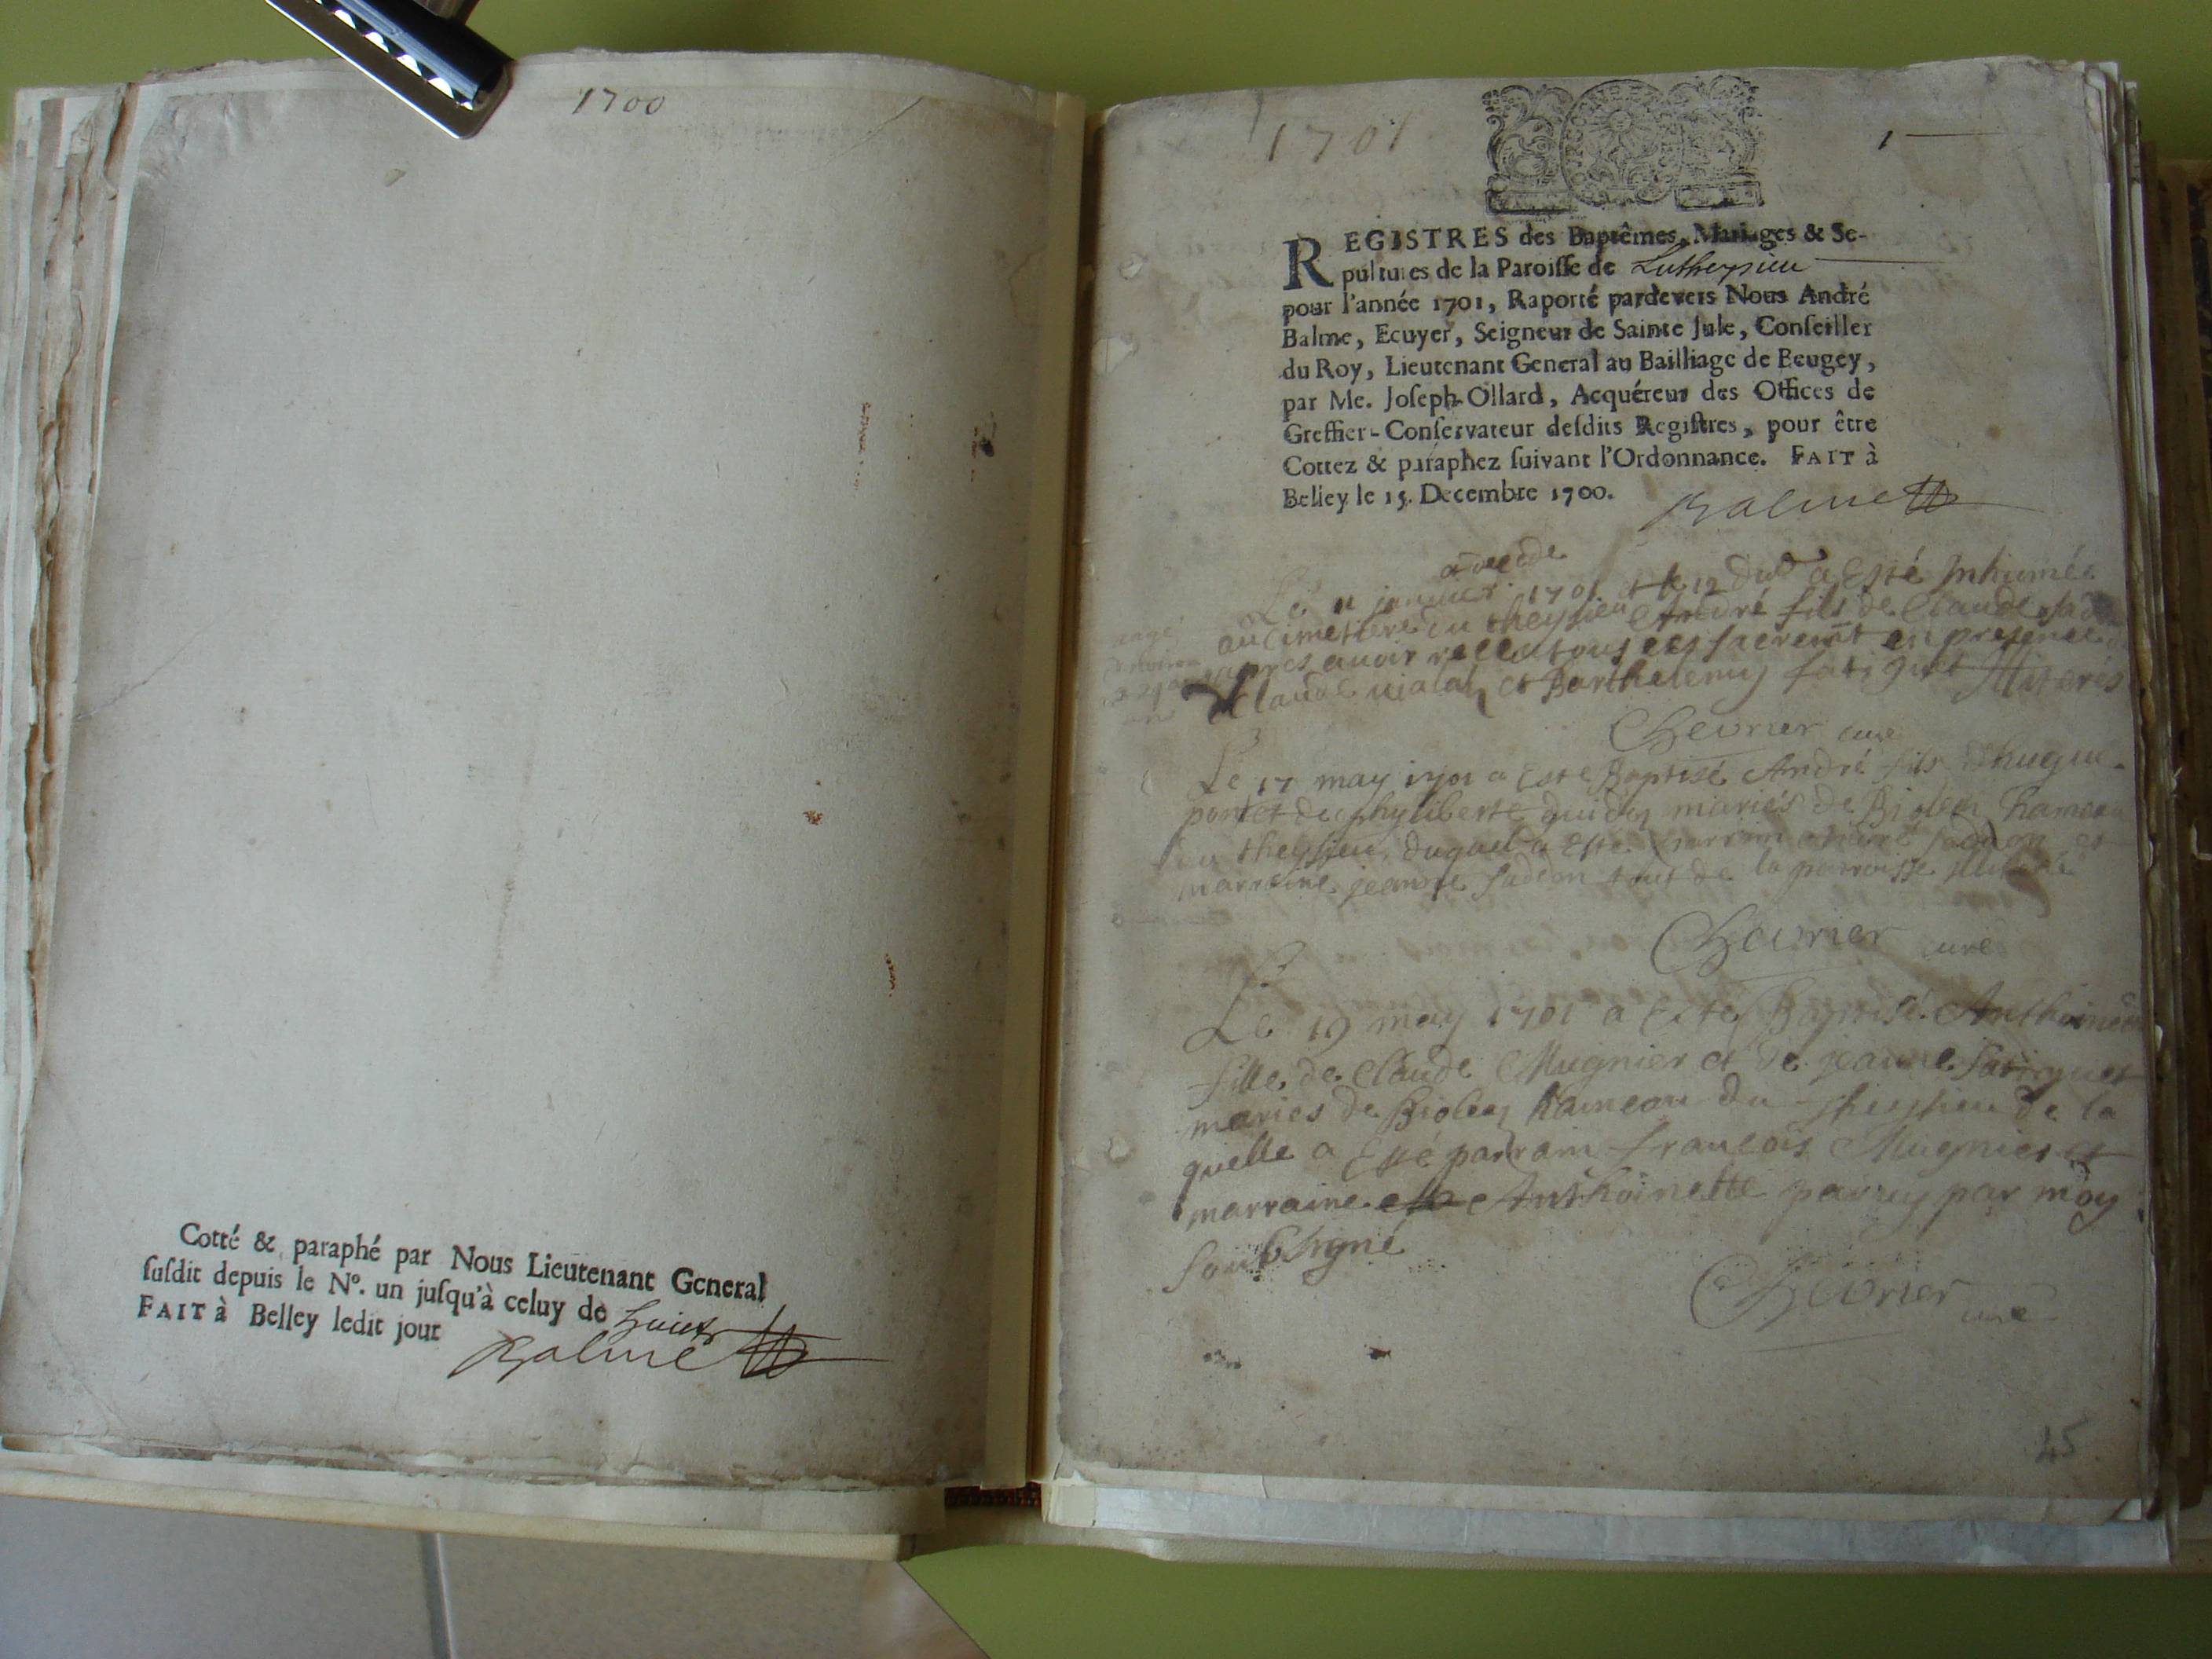 1700
Cotté & paraphé par Nous Lieutenant General
ſuſdit depuis le Nº. un juſqu'à celuy de huict
FAIT à Belley ledit jour
Balme
1701
1
REGISTRES des Baptêmes, Mariages & Se-
pultures de la Paroiſſe de Lutheysieu
pour l'année 1701, Raporté pardevers Nous André
Balme, Ecuyer, Seigneur de Sainte Jule, Conſeiller
du Roy, Lieutenant General au Bailliage de Beugey,
par Me. Joſeph Ollard, Acquéreur des Offices de
Greffier-Conſervateur deſdits Regiſtres, pour être
Cottez & paraphez ſuivant l'Ordonnance. FAIT à
Belley le 15. Decembre 1700.
Balme
Le 11 janvier 1701 et le 12 dud a Esté Inhumé
au cimettiere du theysieu André fils de Claude
apres avoir receu tous ses sacrem̃t en presence
de Claude vialah et Barthelemy fatiguet Illiterés
Chevrier cure
Le 17 may 1701 a Esté Baptisé André fils d'hugue
pontet de phyliberte guidon mariés de Biolea hameau
du theysieu, duquel a Esté parrain André et
marraine jeanne tout de la parroisse
Chevrier curé
Le 19 may 1701 a Esté Baptisé Anthoinette
fille de Claude Mugnier et de jeanne fatiguet
mariés de Biolea hameau du theysieu de la
quelle a Esté parrain francois Mugnier et
marraine Anthoinette par moy
soubsigné
Chevrier curé
45